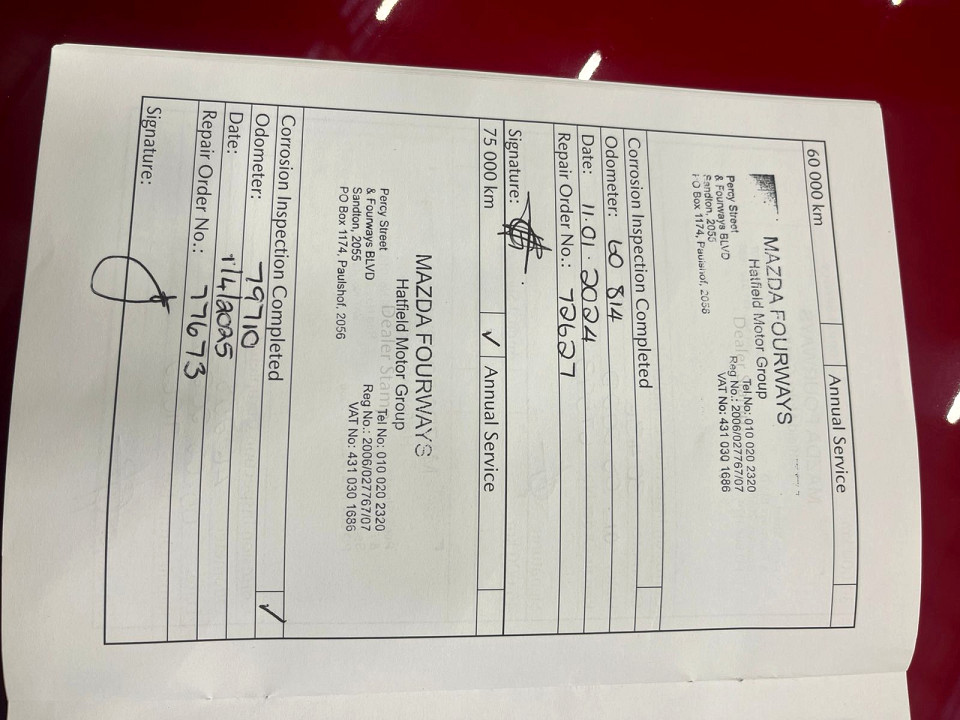 60 000 km
Annual Service
MAZDA FOURWAYS
Hatfield Motor Group
Percy Street
& Fourways BLVD
Sandton, 2055
PO Box 1174, Paulshof, 2056
Dealer
Tel No: 010 020 2320
Reg No.: 2006/027767/07
VAT No: 431 030 1686
Corrosion Inspection Completed
Odometer: 60 814
Date: 11.01.2024
Repair Order No.: 72627
Signature:
75 000 km ✓ Annual Service
MAZDA FOURWAYS
Hatfield Motor Group
Percy Street
& Fourways BLVD
Sandton, 2055
PO Box 1174, Paulshof, 2056
Dealer Stam
Tel No: 010 020 2320
Reg No.: 2006/027767/07
VAT No: 431 030 1686
Corrosion Inspection Completed
Odometer: 79710 ✓
Date: 1/4/2025
Repair Order No.: 77673
Signature: